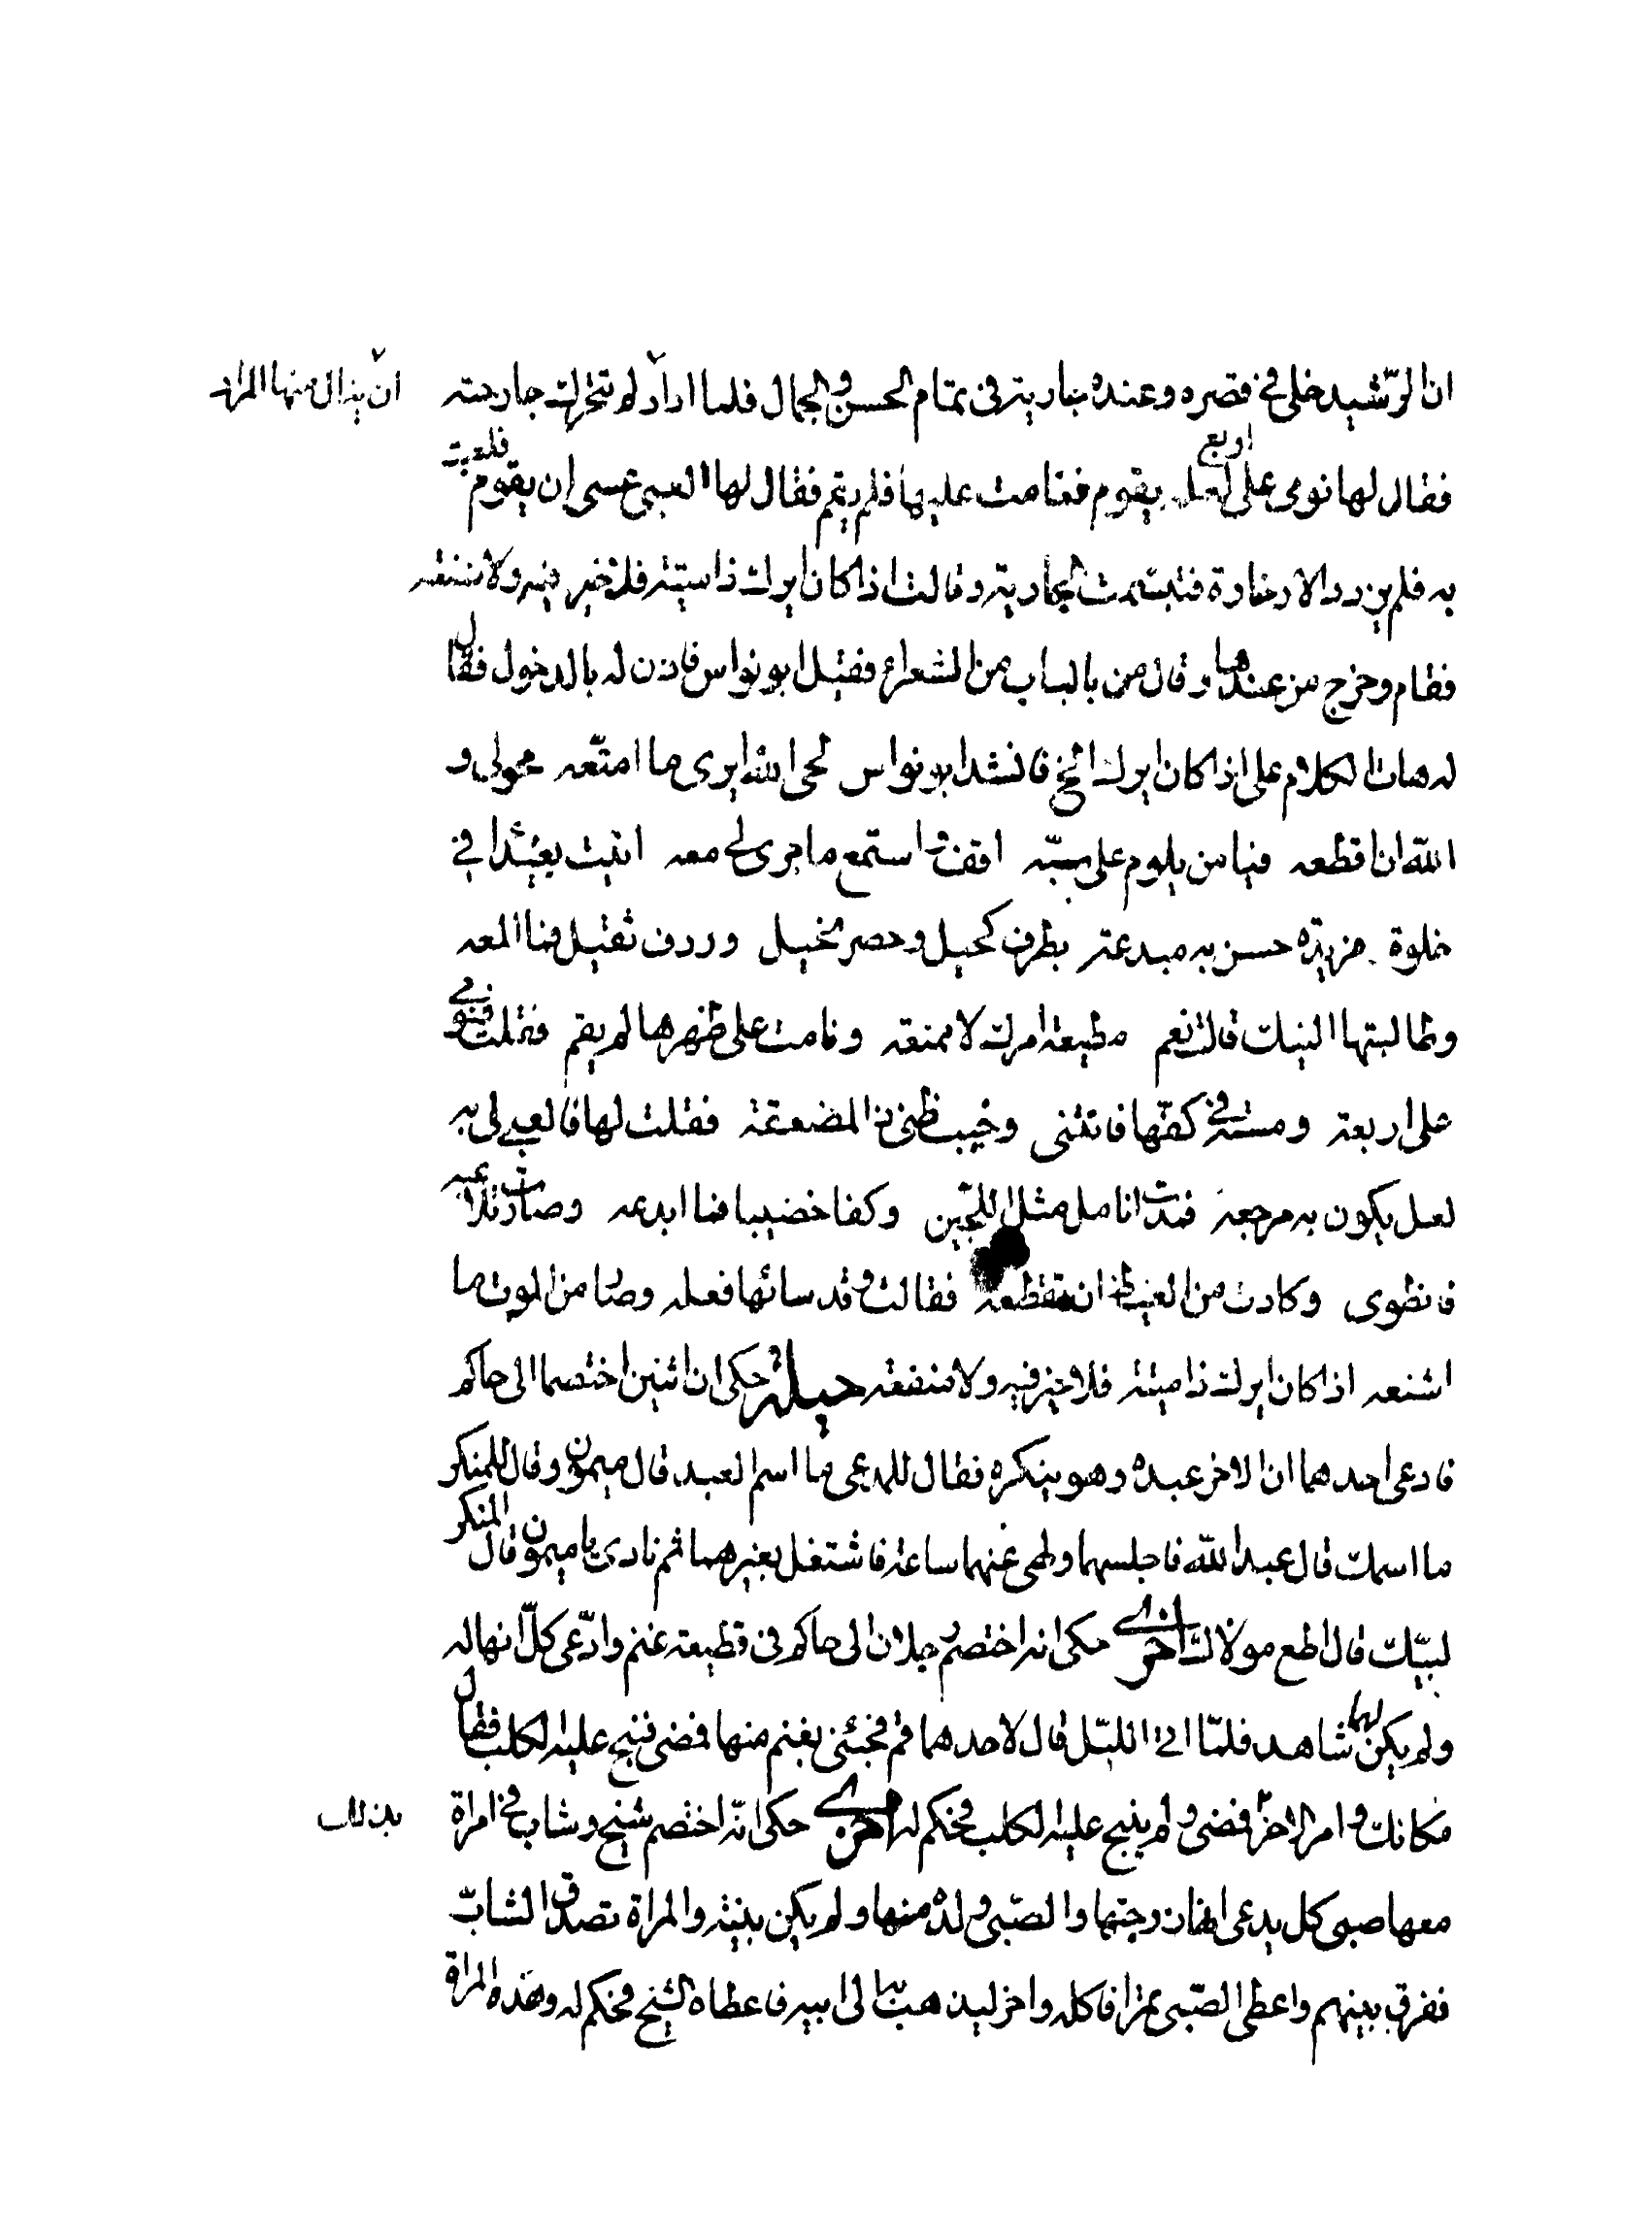 ان الرّشيد خلى في قصره وعنده جارية في تمام الحسن والجمال فلما اراد لم تتحرك جارحته ان ينال منها المراد
فقال لها نومى على اربع لعل يقوم فقامت عليها فلم يقم فقال لها العبى عسى ان يقوم فلعبت
به فلم يزدد الا رخاوة فتبسمت الجارية وقالت اذا كان ايرك ذا ميتة فلا خير فيه ولا منفعه
فقام وخرج من عندها وقال من بالباب من الشعراء فقيل ابو نواس فاذن له بالدخول فقال
له هات الكلام على اذا كان ايرك الخ فانشد ابو نواس لحى الله ايرى ما امتّعه حولى و
الله ان اقطعه فيا من يلوم على سبّه اقف واستمع ما جرى لى معه اتيت بغيدا في
خلوة مزيدة حسن به مبدعة بطرف كحيل وخصر نحيل وردف ثقيل فما المعه
وطالبتها النيك قالت نعم مطيعة امرك لا ممنعه ونامت على ظهرها لم يقم فقلت فنومى
على اربعة ومسته في كفّها فانثنى وخيب ظنى ذا المضعفة فقلت لها فالعبى لى به
لعل يكون به مرجعه فمدت انامل مثل اللجين وكفا خضيبا فما ابدعه وصارت تلاعبه
فانطوى وكادت من الغيظ ان تقطعه فقالت وقد سائها فعله وصار من الموت ما
اشنعه اذا كان ايرك ذا ميتة فلا خير فيه ولا منفعه حيلة حكى ان اثنين اختصما الى حاكم
فادعى احدهما ان الاخر عبده وهو ينكره فقال للمدعى ما اسم العبد قال ميمون وقال للمنكر
ما اسمك قال عبد الله فاجلسهما ولهى عنهما ساعة فاشتغل بغيرهما ثم نادى يا ميمون قال المنكر
لبيّك قال اطع مولاك اخرى حكى انه اختصم رجلان الى حاكم فى قطيعة غنم وادّعى كلّ انها له
ولم يكن لهما شاهد فلمّا اتى الليّل قال لاحدهما قم فجئنى بغنم منها فمضى فنبح عليه الكلب فقال
مكانك وامر الاخر فمضى ولم ينبح عليه الكلب فحكم له اخرى حكى انّه اختصم شيخ وشاب في امراة
معها صبى كل يدعى انها زوجتها والصّبى ولده منها ولم يكن بينة والمراة تصدق الشابّ بذلك
ففرق بينهم واعطى الصّبى تمرا فاكله واخر ليذهب بها الى ابيه فاعطاه الشيخ فحكم له وهذه المراة